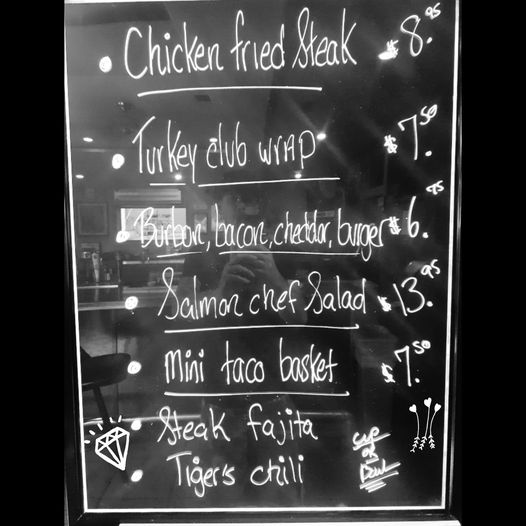 Chicken fried Steak $8.95
Turkey club wrap $7.50
Burbon, bacon, cheddar, burger $6.95
Salmon chef Salad $13.95
Mini taco basket $7.50
Steak fajita
Tiger's chili
Cup
or
Bowl